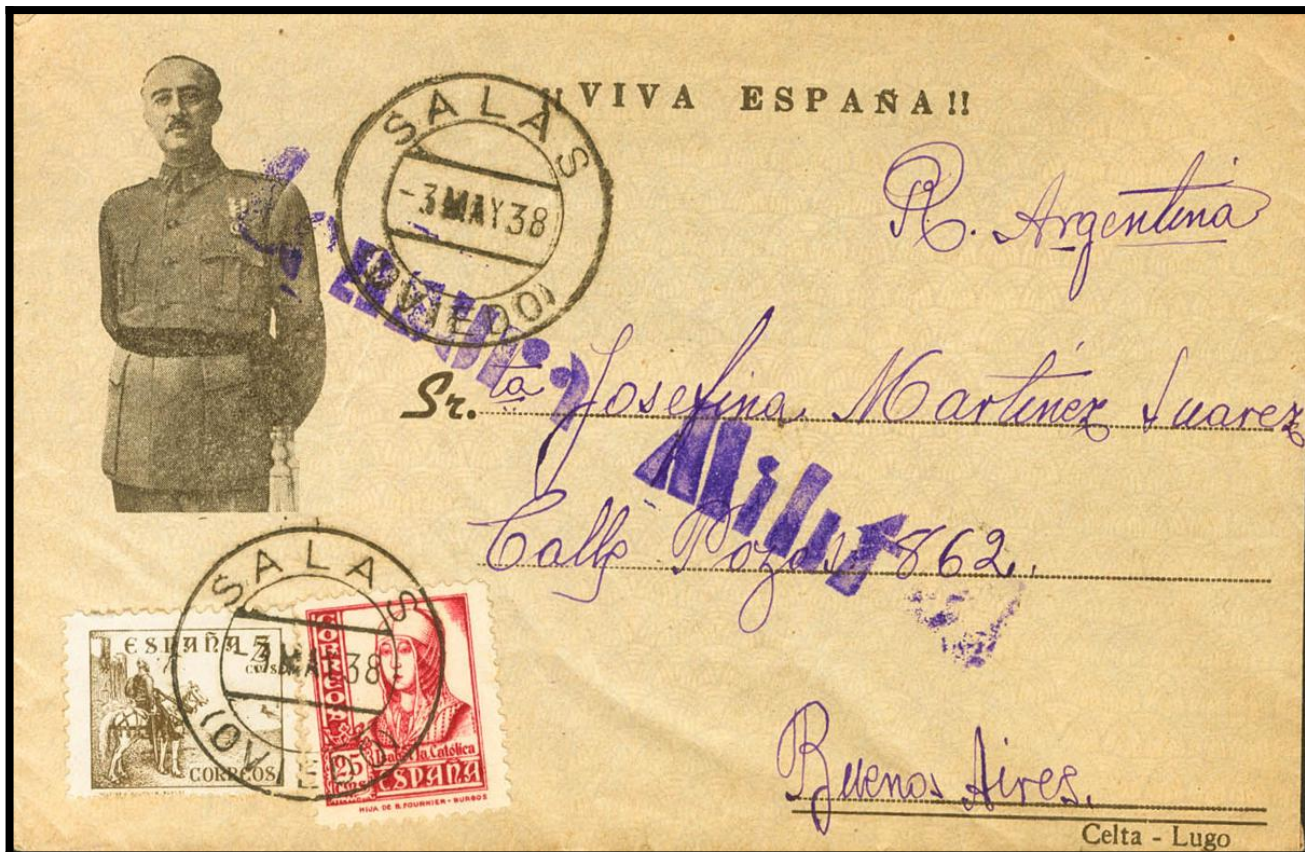 ¡¡VIVA ESPAÑA!!
SALAS
-3 MAY 38
(OVIEDO)
R. Argentina
Sr.ta Josefina Martínez Suarez
Calle Pozos 862.
Buenos Aires.
Celta - Lugo
SALAS
-3 MAY 38
(OVIEDO)
ESPAÑA
CORREOS
CORREOS
Isabel la Católica
25 CTS
ESPAÑA
HIJA DE B. FOURNIER - BURGOS